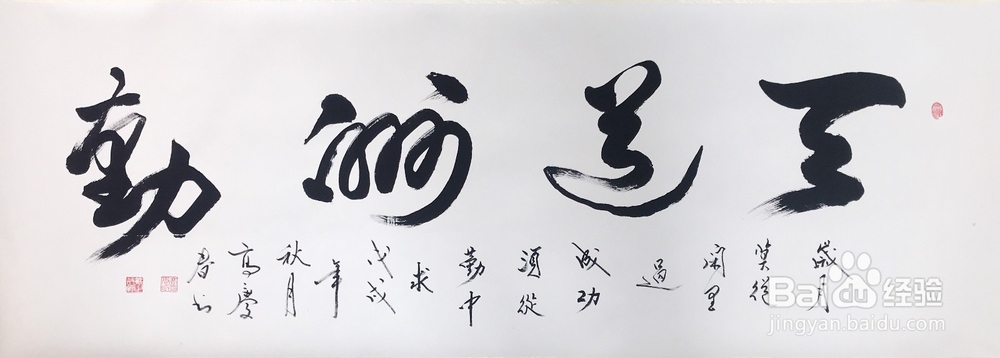 天道酬勤
歲月
莫從
闲里
過
成功
須從
勤中
求
戊戌
年
秋月
高慶
春书
Baidu经验
jingyan.baidu.com